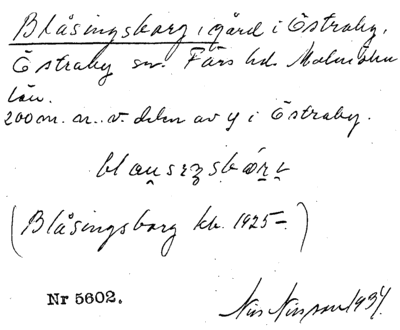 Blåsingsborg, gård i Östraby,
Östraby sn. Färs hd. Malmöhus
län.
200 m. n. v. delen av y i Östraby.
(Blåsingsborg kb. 1925–)
Nr 5602.
Nils Nilsson 1934.